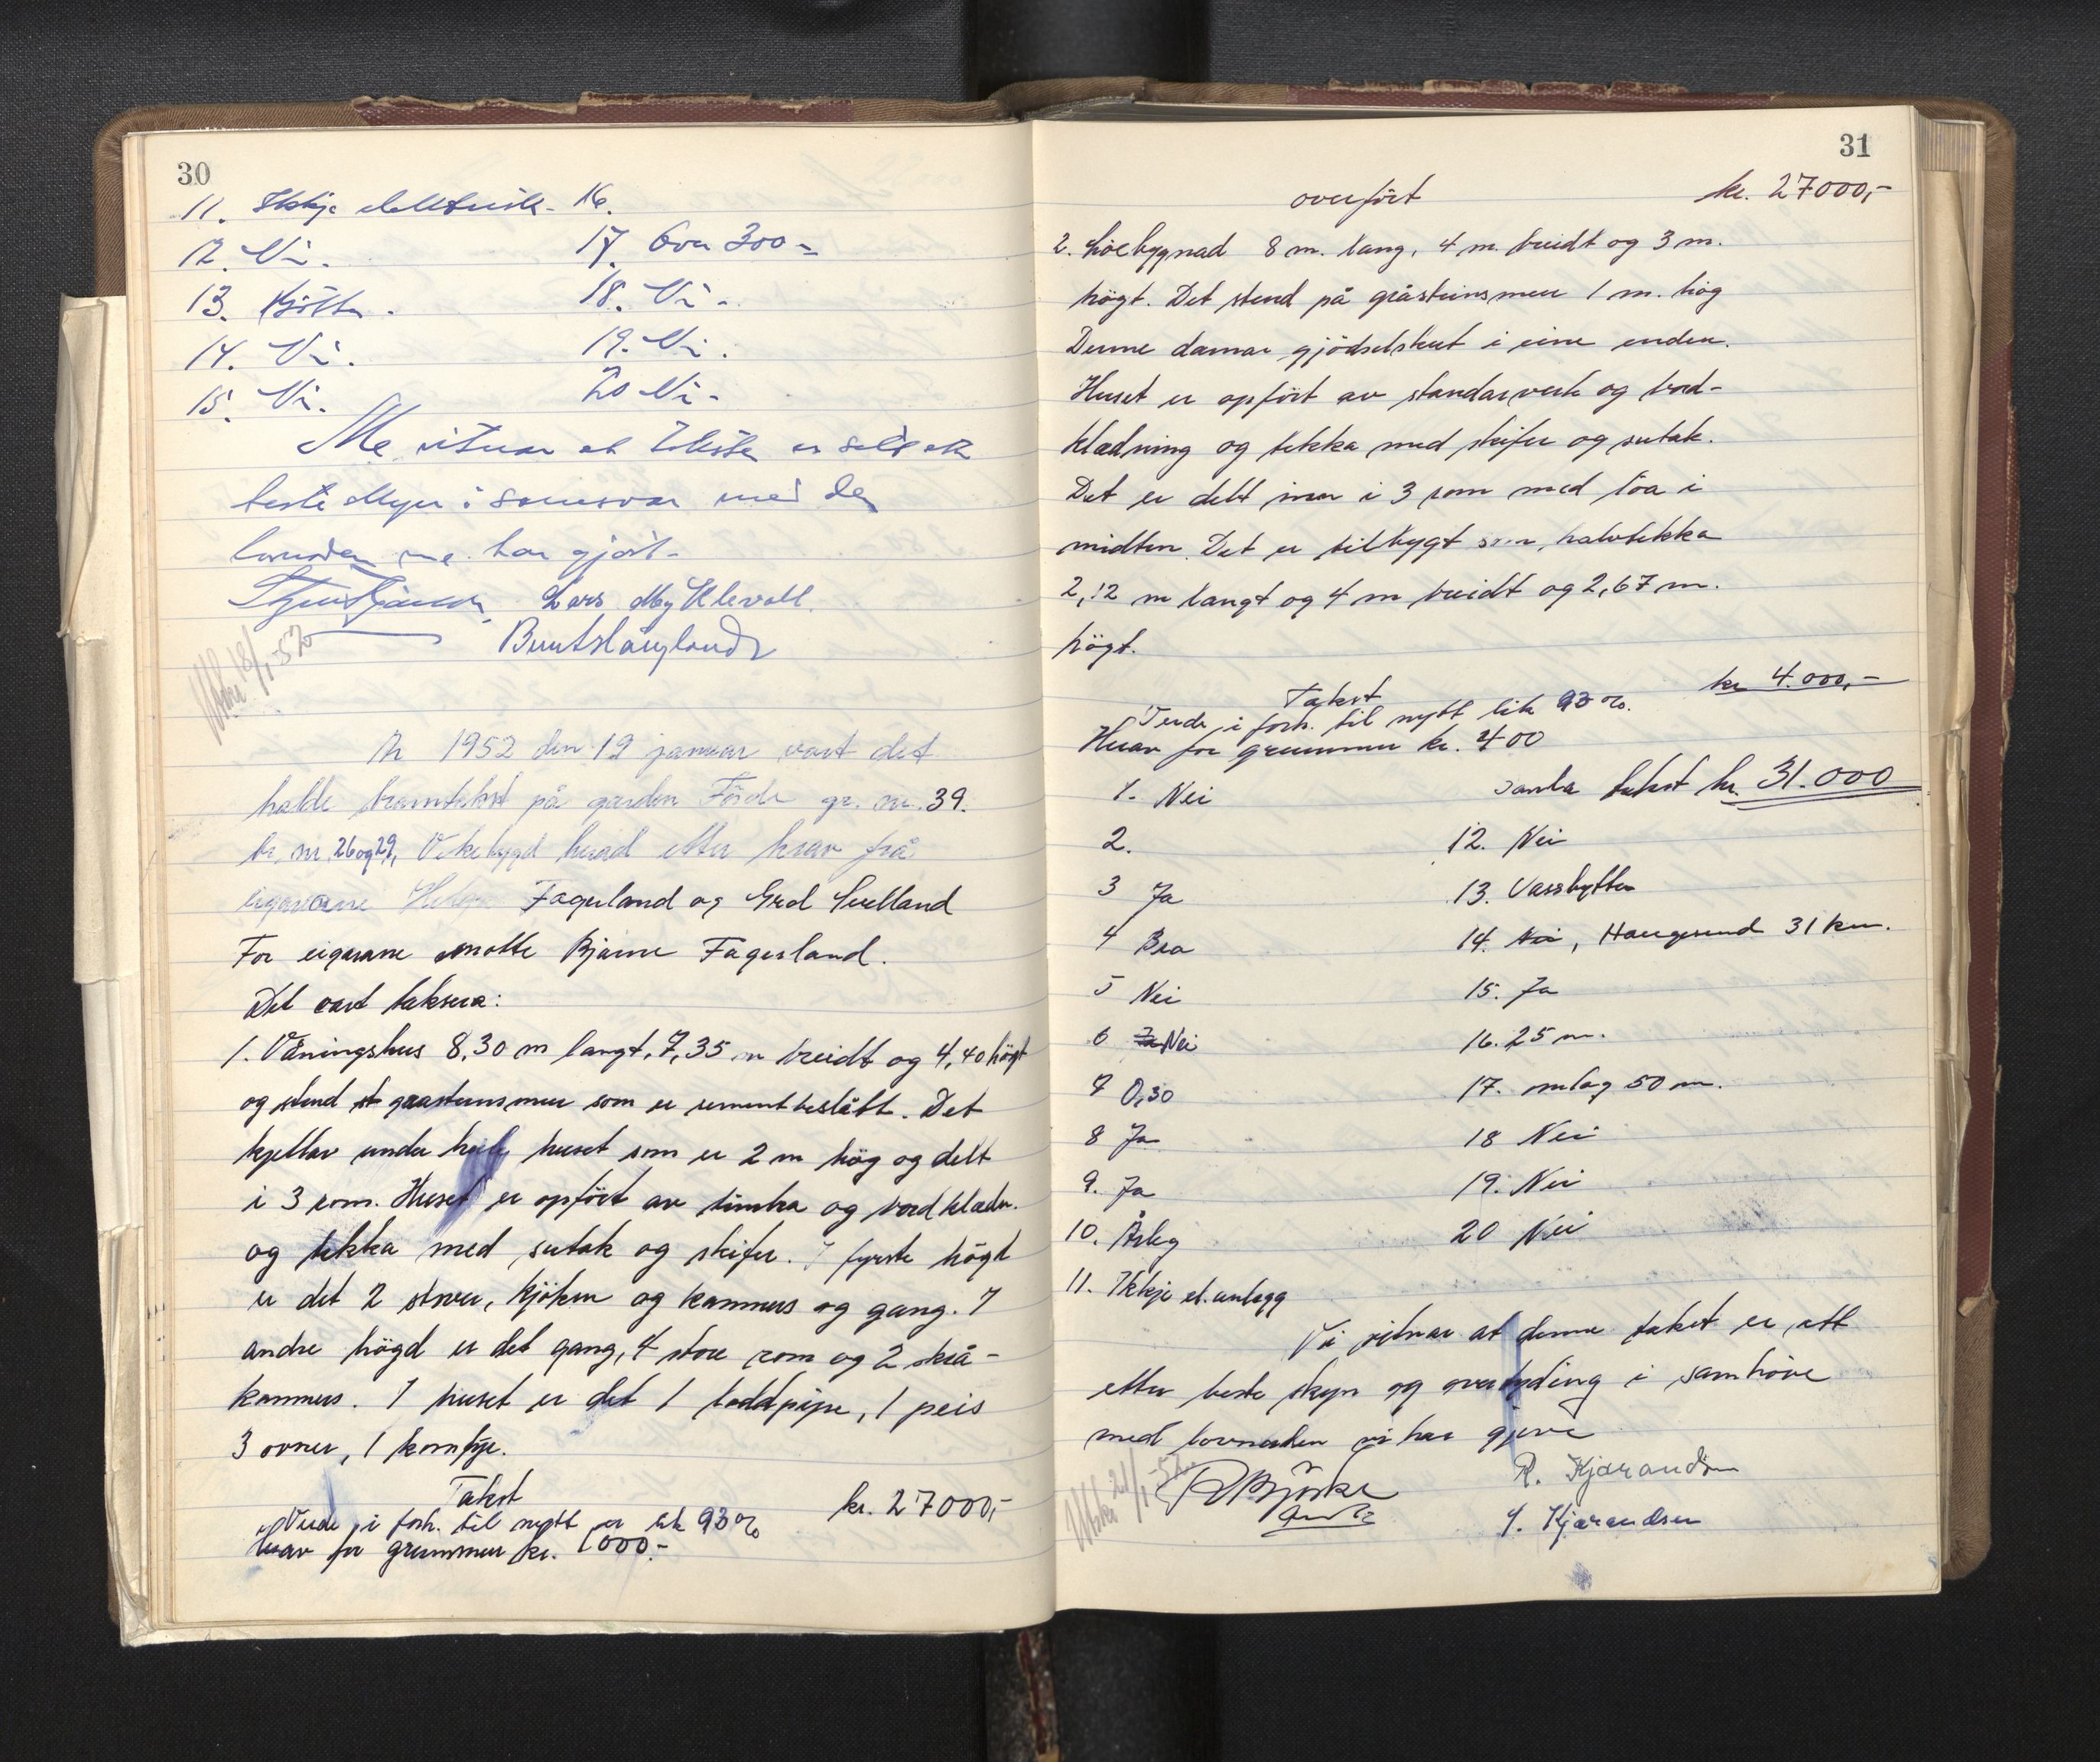 30
11. Ikkje elektrisk. 16.
12. Nei. 17. Over 300 m
13. Bøtter. 18. Nei.
14. Nei. 19. Nei.
15. Nei. 20 Nei.
Me vitnar at taksten er sett etter
beste skyn i samsvar med den
lovnaden me har gjort.
Lars Myklevoll
Berent Haugland
Utskr. 18/1-52
År 1952 den 19 januar vart det
halde branntakst på garden Förde gr. nr. 39.
br. nr. 26 og 29, Vikebygd herad etter krav frå
eigarane Fagerland og Grd Svelland
For eigarane møtte Bjarne Fagerland.
Det vart taksera:
1. Våningshus 8,30 m langt, 7,35 m breidt og 4,40 högt
og stend gråsteinsmur som er sementbeslått. Det
kjellar under heile huset som er 2 m hög og delt
i 3 rom. Huset er opfört av timbra og bordklædn.
og tekka med sutak og skifer. I fyrste högd
er det 2 stover, kjöken og kammers og gang. I
andre högd er det gang, 4 store rom og 2 skrå-
kammers. I huset er det 1 loddpipe, 1 peis
3 ovner, 1 komfyr.
Takst kr. 27000,-
Verde i forh. til nytt er lik 93%
herav for grunnmur kr. 1000.-
31
overfört kr. 27000,-
2. Löebygnad 8 m. lang, 4 m. breidt og 3 m.
högt. Det stend på gråsteinsmur 1 m. hög
Denne dannar gjödselskut i eine enden.
Huset er opfört av standarverk og bord-
klædning og tekka med skifer og sutak.
Det er delt inn i 3 rom med löa i
midten. Det er tilbygt som halvtekka
2,12 m langt og 4 m breidt og 2,67 m.
högt.
Takst kr 4.000,-
Verde i forh. til nytt lik 93%.
Herav for grunnmur kr. 400
1. Nei Samla takst kr. 31.000
2. 12. Nei
3 Ja 13. Vassbytter
4 Bra 14. Nei, Haugesund 31 km.
5 Nei 15. Ja
6 Ja Nei 16. 25 m.
7 0,30 17. omlag 50 m.
8 Ja 18 Nei
9. Ja 19. Nei
10. Årleg 20 Nei
11. Ikkje el. anlegg
Vi vitnar at denne takst er sett
etter beste skyn og overtyding i samhöve
med lovnaden vi har gjeve
Utskr. 21/1-52
R. Kjærandsen
S. Kjærandsen